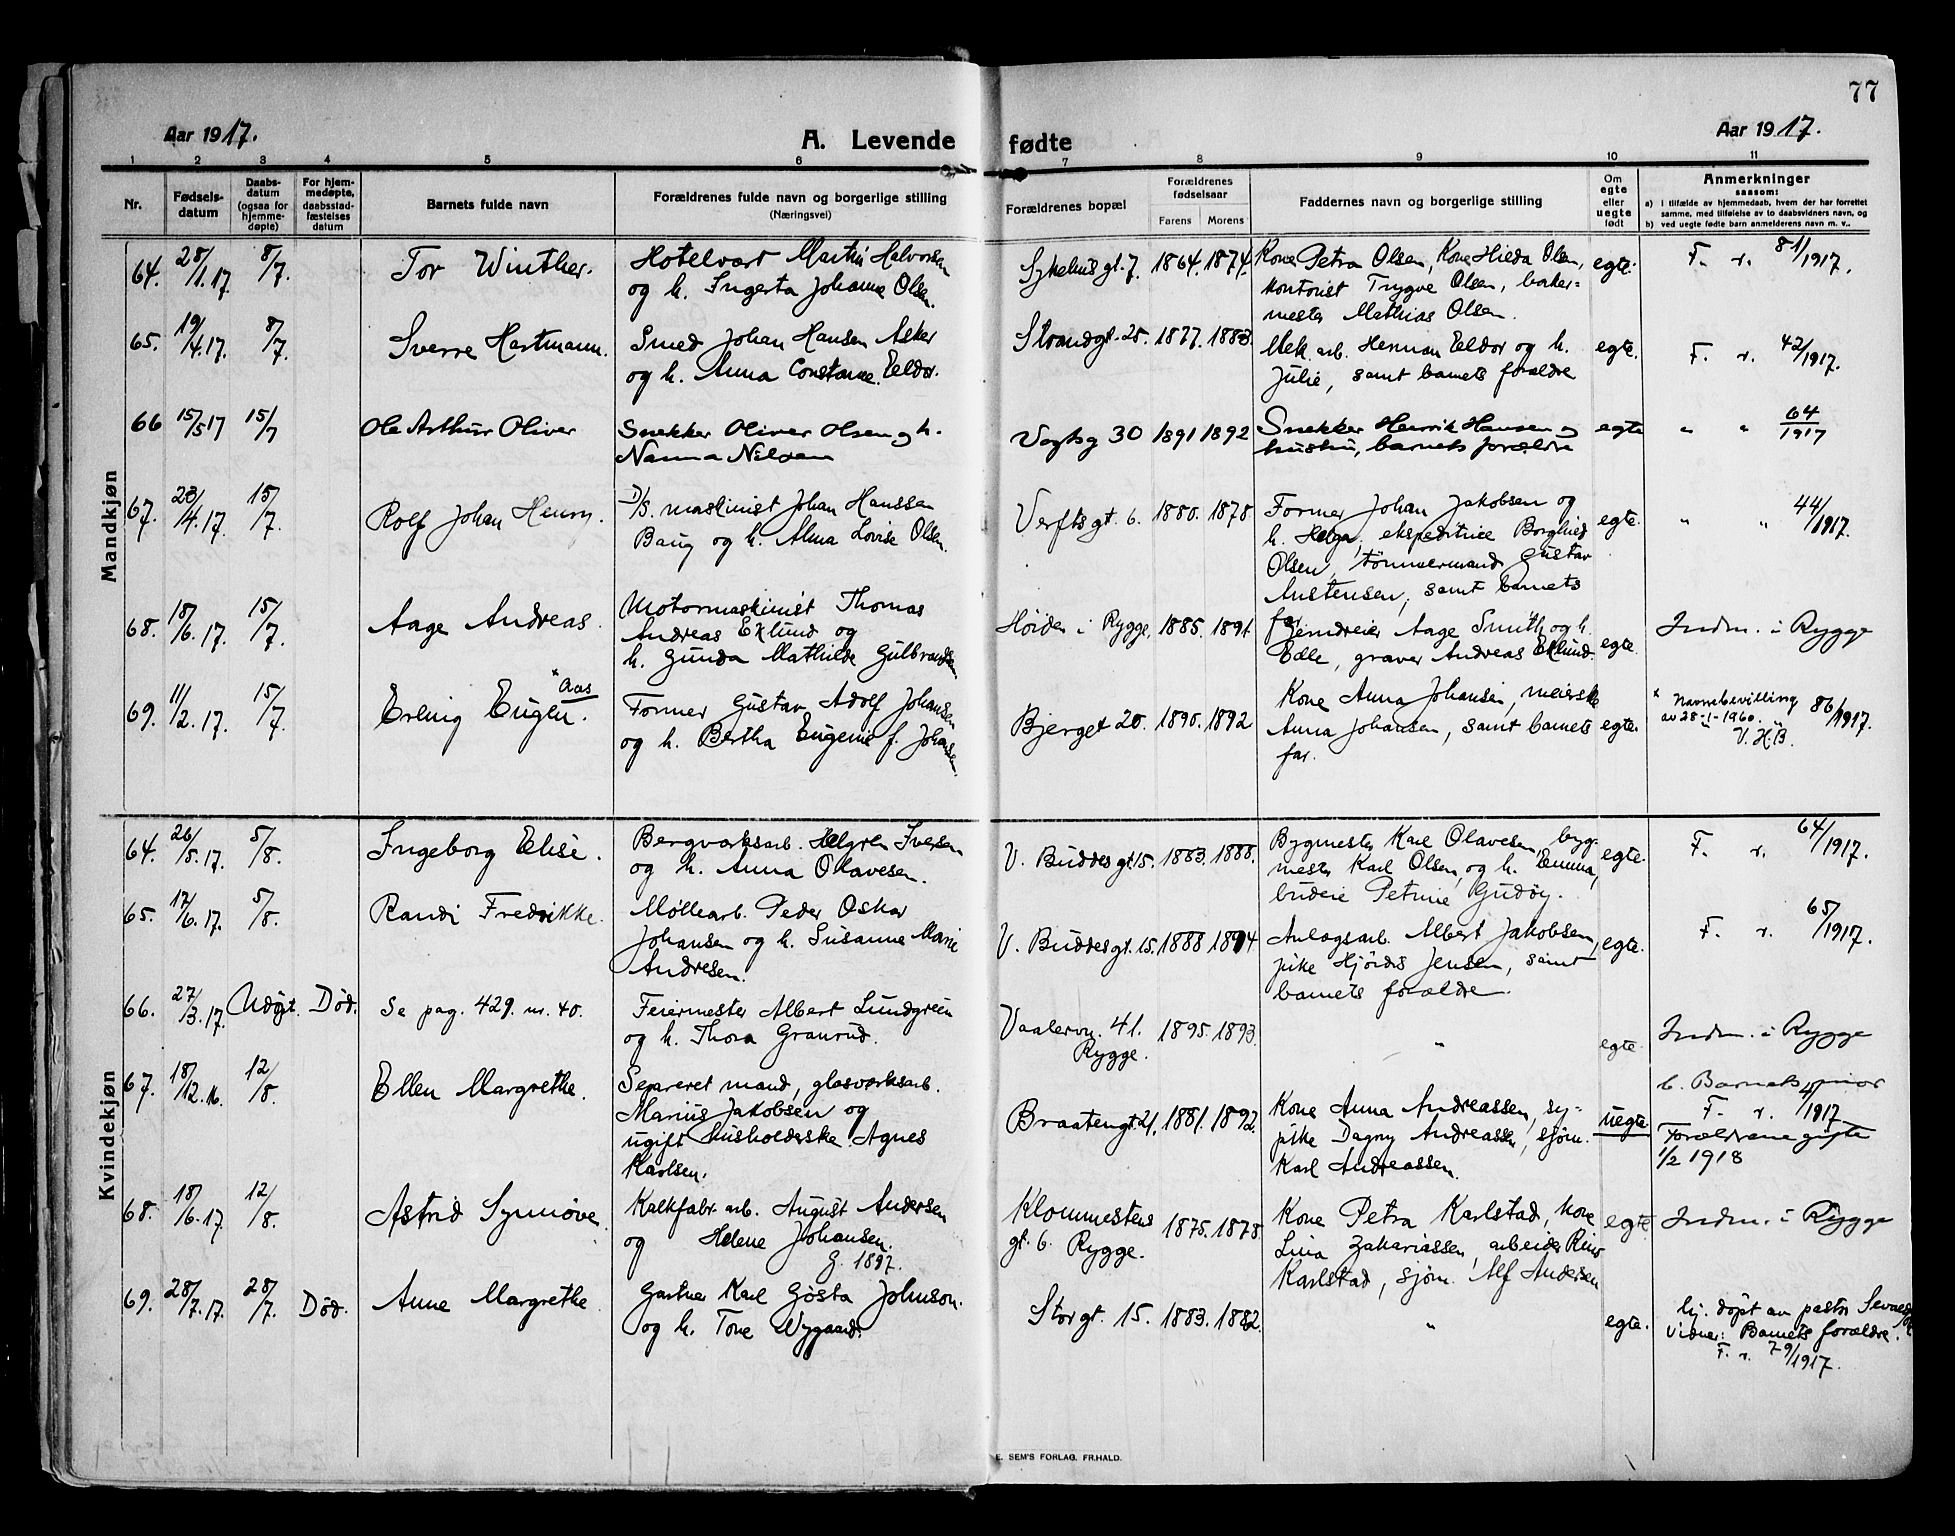 77
Aar 1917.
A. Levende fødte
Aar 1917.
1 2 3 4 5 6 7 8 9 10 11
Nr.
Fødsels-
datum
Daabs-
datum
(ogsaa for
hjemme-
døpte)
For hjem-
medøpte,
daabsstad-
fæstelses
datum
Barnets fulde navn
Forældrenes fulde navn og borgerlige stilling
(Næringsvei)
Forældrenes bopæl
Forældrenes
fødselsaar
Farens Morens
Faddernes navn og borgerlige stilling
Om
egte
eller
uegte
født
Anmerkninger
saasom:
a) i tilfælde av hjemmedaab, hvem der har forrettet
samme, med tilføielse av to daabsvidners navn, og
b) ved uegte fødte barn anmelderens navn m. v..
Mandkjøn
64. 28/1.17. 8/7. Tor Winther.
Hotelvært Martin Halvorsen
og h. Ingerta Johanne Olsen.
Sykehusgt. 7. 1864. 1874.
Kone Petra Olsen, Kone Hilda Olsen,
kontorist Trygve Olsen, baker=
mester Mathias Olsen.
egte. F. r. 81/1917.
65. 19/4.17. 8/7. Sverre Hartmann.
Smed Johan Hansen Asker
og h. Anna Constance Eldor.
Strandgt. 25. 1877. 1883.
Mek. arb. Herman Eldor og h.
Julie, samt barnets forældre
egte. F. r. 42/1917.
66 15/5 17 15/7 Ole Arthur Oliver
Snekker Oliver Olsen og h.
Nanna Nilsen
Vogtsg 30 1891 1892
Snekker Henrik Hansen og
hustru, barnets forældre
egte " " 64/1917
67. 23/4.17. 15/7. Rolf Johan Henry.
D/S. maskinist Johan Hanssen
Baug og h. Alma Lovise Olsen.
Verftsgt. 6. 1880. 1878.
Former Johan Jakobsen og
h. Helga, ekspeditrice Borghild
Olsen, tømmermand Gustav
Austensen, samt barnets
far.
egte. " " 44/1917.
68. 18/6.17. 15/7. Aage Andreas.
Motormaskinist Thomas
Andreas Eklund og
h. Gunda Mathilde Gulbrandsen
Høiden i Rygge. 1885. 1891.
Aage Smith og h.
Edle, graver Andreas Eklund.
egte. Indm. i Rygge
69. 11/2.17. 15/7. Erling Eugen. x Aas
Former Gustav Adolf Johansen
og h. Bertha Eugenie f. Johansen.
Bjerget 20. 1890. 1892
Kone Anna Johansen, meierske
Anna Johansen, samt barnets
far.
egte.
x Navnebevilling
av 28-1-1960.
V. H. B.
86/1917.
Kvindekjøn
64. 26/5.17. 5/8. Ingeborg Elise.
Bergverksarb. Helgren Iversen
og h. Anna Olavesen.
V. Buddesgt. 15. 1883. 1888.
Bygmester Karl Olavesen, byg-
mester Karl Olsen, og h. Emma,
budeie Petrine Gudøy.
egte. F. r. 64/1917.
65. 17/6.17. 5/8. Randi Fredrikke.
Møllearb. Peder Oskar
Johansen og h. Susanne Marie
Andresen.
V. Buddesgt. 15. 1888 1894
Anlægsarb. Albert Jakobsen,
pike Hjørdis Jensen, samt
barnets forældre.
egte. F. r. 65/1917.
66. 27/3.17. Udøpt. Død. Se pag. 429. nr. 40.
Feiermester Albert Lundgreen
og h. Thora Granrud.
Vaalervn. 41.
Rygge.
1895. 1893. " egte. Indm. i Rygge
67. 18/12.16. 12/8. Ellen Margrethe.
Separeret mand, glasverksarb.
Marius Jakobsen og
ugift husholderske Agnes
Karlsen.
Braatengt. 21. 1881. 1892.
Kone Anna Andreassen, sy-
pike Dagny Andreassen, sjøm.
Karl Andreassen.
uegte
b. Barnets mor
F. r. 4/1917
Forældrene gifte
1/2 1918
68. 18/6.17. 12/8. Astrid Synnøve.
Kalkfabr. arb. August Andersen
og Helene Johansen.
G. 1897.
Klommestens
gt. 6. Rygge.
1875. 1878.
Kone Petra Karlstad, kone
Lina Zakariassen, arbeider
Karlstad, sjøm. Alf Andersen
egte Indm. i Rygge
69. 28/7.17. 28/7. Død. Anne Margrethe
Gartner Karl Gösta Johnson.
og h. Tone Nygaard.
Storgt. 15. 1883. 1882. " egte.
hj. døpt av pastor
Vidner: Barnets forældre.
F. r. 79/1917.
E. SEM'S FORLAG. FR.HALD.